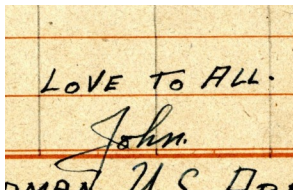 LOVE TO ALL.
John.
U.S.